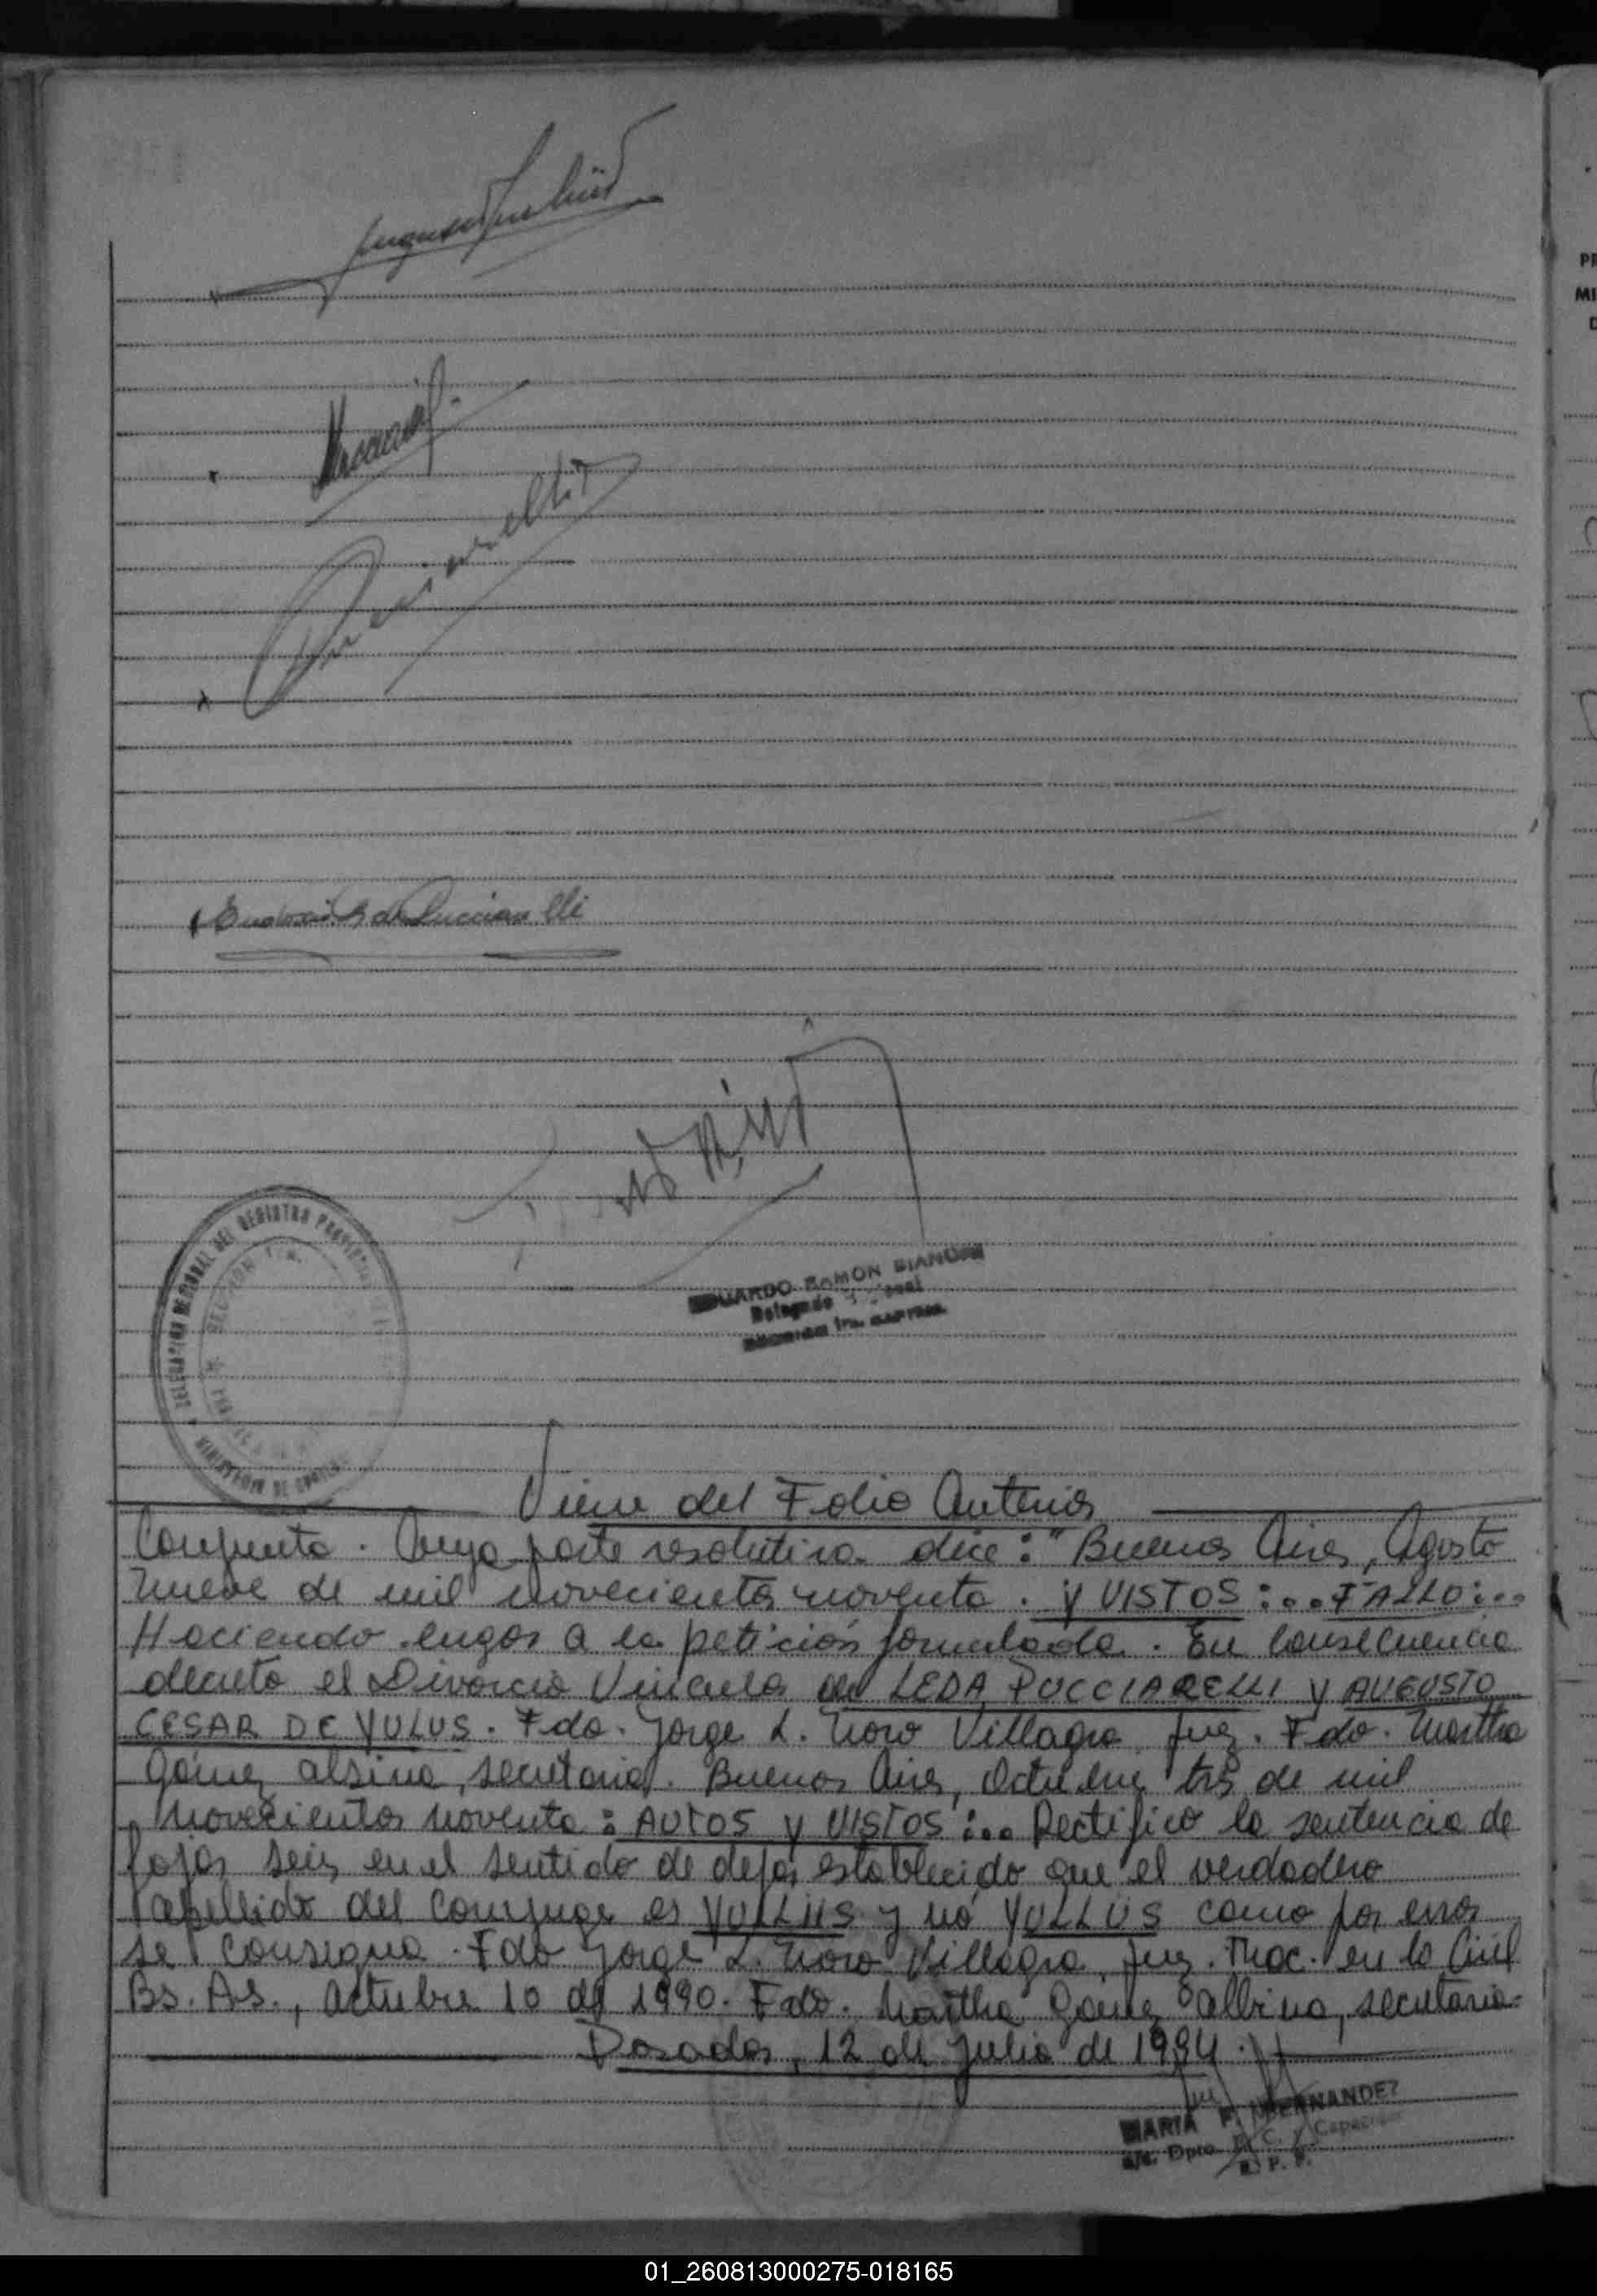 Eudosia B de Pucciarelli
DELEGACION REGIONAL DEL REGISTRO PROVINCIAL
EDUARDO RAMON BIANCHI
Delegado
Viene del Folio Anterior
Conjunta. Cuya parte resolutiva dice: "Buenos Aires, Agosto
nueve de mil novecientos noventa. Y VISTOS:... FALLO:...
Haciendo lugar a la petición formulada. En consecuencia
decreto el Divorcio Vincular de LEDA PUCCIARELLI y AUGUSTO
CESAR DE YULUS. Fdo. Jorge L. Noro Villagra. Juez. Fdo. Martha
Gómez alsina, secretaria. Buenos Aires, Octubre tres de mil
novecientos noventa: AUTOS y VISTOS:... Rectifico la sentencia de
fojas seis en el sentido de dejar establecido que el verdadero
apellido del conyuge es y no YULLUS como por error
se consigna. Fdo Jorge L. Noro Villagra. Juez. Nac. en lo Civil
Bs. As., octubre 10 de 1990. Fdo. Martha Gomez albina, secretaria.
Posadas, 12 de Julio de 1994.
MARIA F. HERNANDEZ
a/c. Dpto. C. y Capac
R. P. P.
01_260813000275-018165